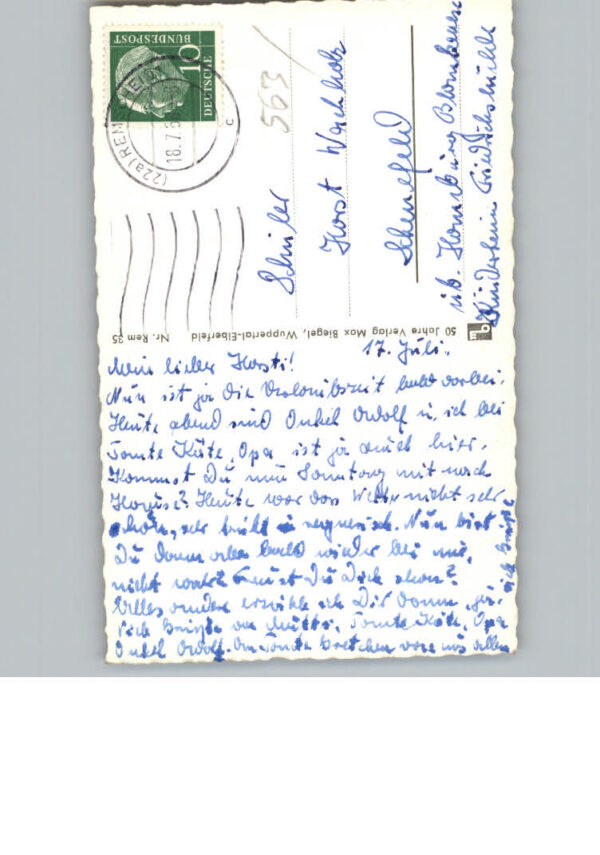 DEUTSCHE
BUNDESPOST
10
(22a) REMSCHEID
18.7.5
c
563
Schüler
Horst
Schenefeld
üb. Hamburg Blankenese
Kinderheim Friedrichshulde
50 Jahre Verlag Max Biegel, Wuppertal-Elberfeld Nr. Rem 35
mb
17. Juli.
Mein lieber Horsti!
Nun ist ja die bald vorbei.
Heute abend sind Onkel Adolf u. ich bei
Tante Käte, Opa ist ja auch hier.
Kommst Du nun Sonntag mit nach
Hause? Heute war das Wetter nicht sehr
schön, sehr kühl regnerisch. Nun bist
Du dann aber bald wieder bei mir,
nicht wahr? Freust Du Dich schon?
Alles andere erzähle ich Dir dann,
Mutti, Tante Käte, Opa
Onkel Adolf. Tante Gretchen von uns allen